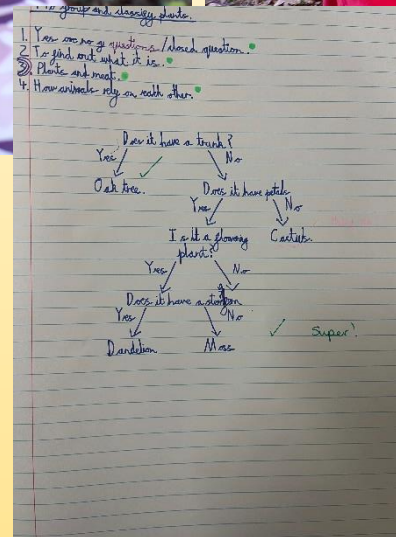 To group and classify plants.
1. Yes or no questions / closed question.
2. To find out what it is.
3. Plants and meat.
4. How animals rely on each other.
Does it have a trunk?
Yes No
Oak tree. Does it have petals
Yes No
Is it a flowering Cactus.
plant?
Yes No
Does it have a
Yes No
Dandelion Moss
Super!